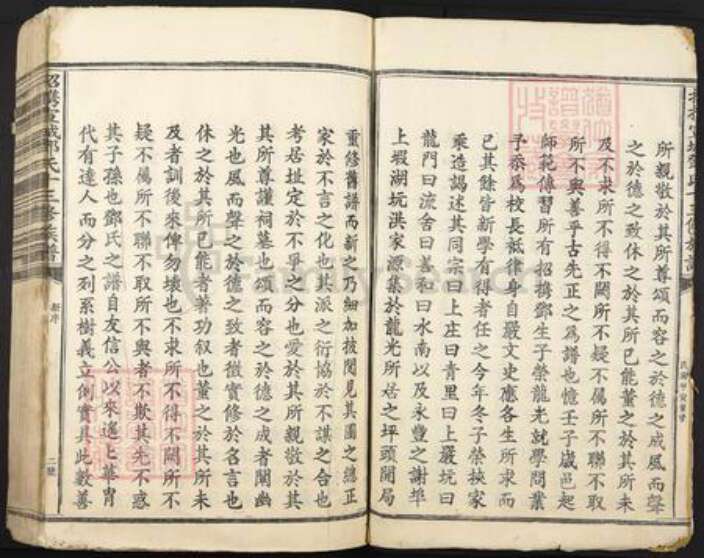 所親敬於其所尊頌而容之於德之成風而聲
之於德之致休之於其所已能董之於其所未
及不求所不得不闕所不疑不屬所不聯不取
所不與善乎古先正之爲譜也憶壬子歲邑起
師範傳習所有招携鄧生子榮龍光就學問業
予忝爲校長祗律身自嚴文史應各生所求而
已其餘皆新學有得者任之今年冬子榮挾家
乘造謁述其同宗曰上庄曰青里曰上嚴坑曰
龍門曰流舍曰善和曰水南以及永豐之謝埠
上塅湖坑洪家源集於龍光所居之坪頭開局
重修舊譜而新之乃細加披閱見其圖之總正
家於不言之化也其派之衍協於不謀之合也
考居址定於不爭之分也愛於其所親敬於其
其所尊謹祠墓也頌而容之於德之成者闡幽
光也風而聲之於德之致者徵實修於名言也
休之於其所已能者著功叙也董之於其所未
及者訓後來俾勿壞也不求所不得不闕所不
疑不屬所不聯不取所不與者不欺其先不惑
其子孫也鄧氏之譜自友信公以來遙上華冑
代有達人而分之列系樹義立例實具此數善
招携宣城鄧氏十三修族譜
新序
二號
FamilySearch